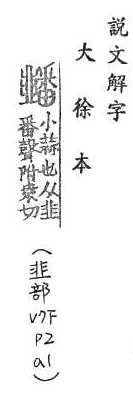 説文解字
大徐本
䪤 小蒜也从韭
番聲附袁切
(韭部 V7下 P2 a1)